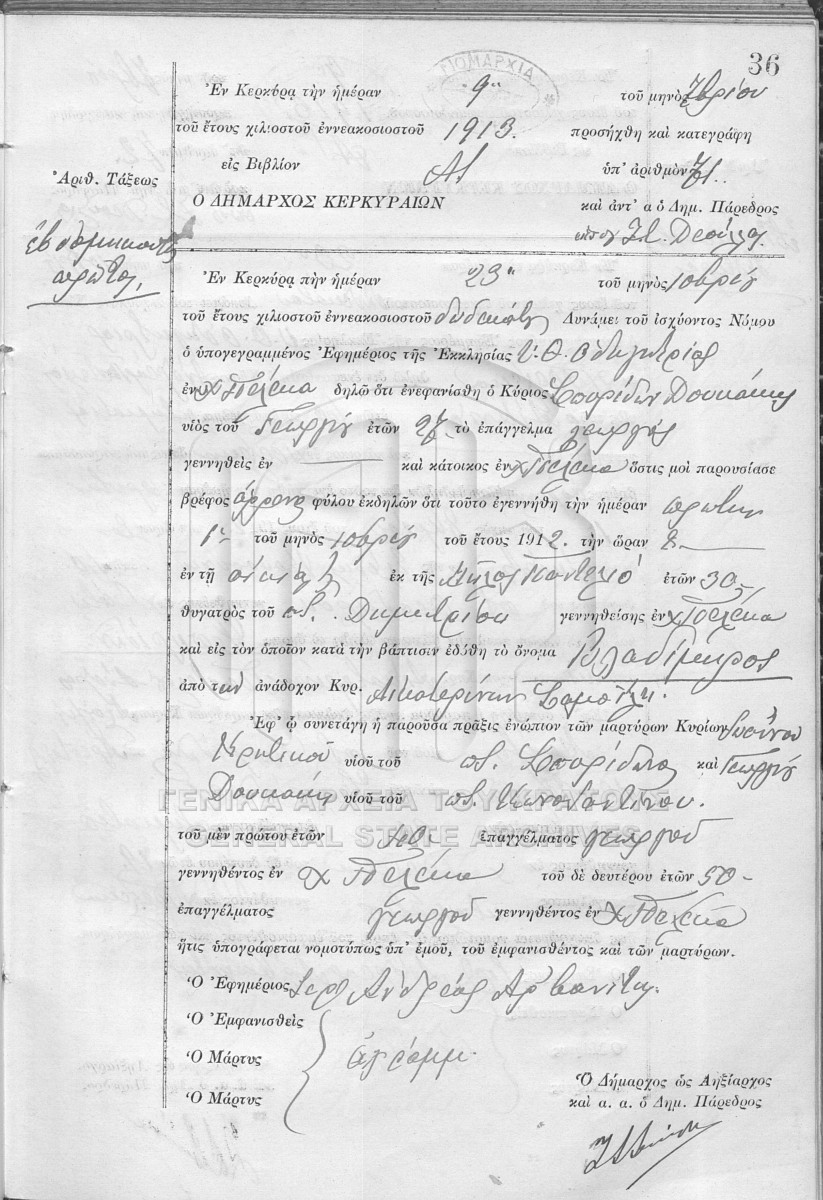 36
ΔΗΜΑΡΧΙΑ
Ἐν Κερκύρᾳ τὴν ἡμέραν 9 τοῦ μηνὸς
τοῦ ἔτους χιλιοστοῦ ἐννεακοσιοστοῦ 1913. προσήχθη καὶ κατεγράφη
εἰς Βιβλίον ὑπ' ἀριθμὸν 71.
Ἀριθ. Τάξεως
Ὁ ΔΗΜΑΡΧΟΣ ΚΕΡΚΥΡΑΙΩΝ καὶ ἀντ' α ὁ Δημ. Πάρεδρος
ἑβδομηκοστὴ
πρώτη,
Ἐν Κερκύρᾳ πὴν ἡμέραν 23 τοῦ μηνὸς
τοῦ ἔτους χιλιοστοῦ ἐννεακοσιοστοῦ δωδεκάτου Δυνάμει τοῦ ἰσχύοντος Νόμου
ὁ ὑπογεγραμμένος Ἐφημέριος τῆς Ἐκκλησίας Υ. Θ. Ὁδηγητρίας
ἐν χ Πέλεκα δηλῶ ὅτι ἐνεφανίσθη ὁ Κύριος Σπυρίδων Δουκάκης
υἱὸς τοῦ Γεωργίου ἐτῶν 27 τὸ ἐπάγγελμα γεωργὸς
γεννηθεὶς ἐν — καὶ κάτοικος ἐν χ Πέλεκα ὅστις μοι παρουσίασε
βρέφος ἄρρενος φύλου ἐκδηλῶν ὅτι τοῦτο ἐγεννήθη τὴν ἡμέραν πρώτην
1ην τοῦ μηνὸς τοῦ ἔτους 1912. τὴν ὥραν 8
ἐν τῇ οἰκίᾳ ἐκ τῆς ἐτῶν 30
θυγατρὸς τοῦ π. Δημητρίου γεννηθείσης ἐν χ Πέλεκα
καὶ εἰς τὸν ὁποῖον κατὰ τὴν βάπτισιν ἐδόθη τὸ ὄνομα Βλαδίμηρος
ἀπὸ τὴν ἀνάδοχον Κυρ. Αἰκατερίνην
Ἐφ' ᾧ συνετάγη ἡ παροῦσα πρᾶξις ἐνώπιον τῶν μαρτύρων Κυρίων
Κρητικοῦ υἱοῦ τοῦ π. Σπυρίδωνος καὶ Γεωργίου
Δουκάκη υἱοῦ τοῦ π. Κωνσταντίνου.
ΓΕΝΙΚΑ ΑΡΧΕΙΑ ΤΟΥ ΚΡΑΤΟΥΣ
GENERAL STATE ARCHIVES
τοῦ μὲν πρώτου ἐτῶν ἐπαγγέλματος γεωργοῦ
γεννηθέντος ἐν χ Πέλεκα τοῦ δὲ δευτέρου ἐτῶν 50
ἐπαγγέλματος γεωργοῦ γεννηθέντος ἐν χ Πέλεκα
ἥτις ὑπογράφεται νομοτύπως ὑπ' ἐμοῦ, τοῦ ἐμφανισθέντος καὶ τῶν μαρτύρων.
Ὁ Ἐφημέριος Ἱερ Ἀνδρέας Ἀρβανίτης
Ὁ Ἐμφανισθεὶς
Ὁ Μάρτυς ἀγράμμ.
Ὁ Μάρτυς
Ὁ Δήμαρχος ὡς Ληξίαρχος
καὶ α. α. ὁ Δημ. Πάρεδρος